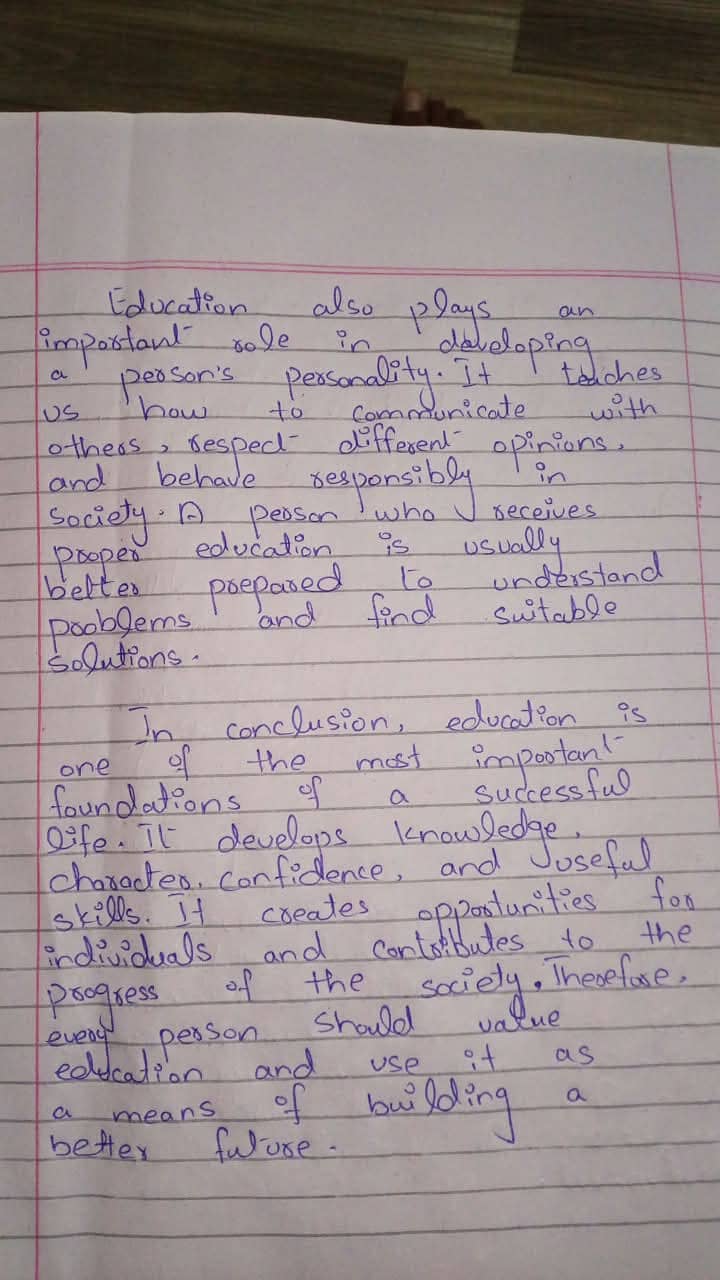 Education also plays an
important role in developing
a person's personality. It teaches
us how to communicate with
others, respect different opinions,
and behave responsibly in
society. A person who receives
proper education is usually
better prepared to understand
problems and find suitable
solutions.
In conclusion, education is
one of the most important
foundations of a successful
life. It develops knowledge,
character, confidence, and useful
skills. It creates opportunities for
individuals and contributes to the
progress of the society. Therefore,
every person should value
education and use it as
a means of building a
better future.